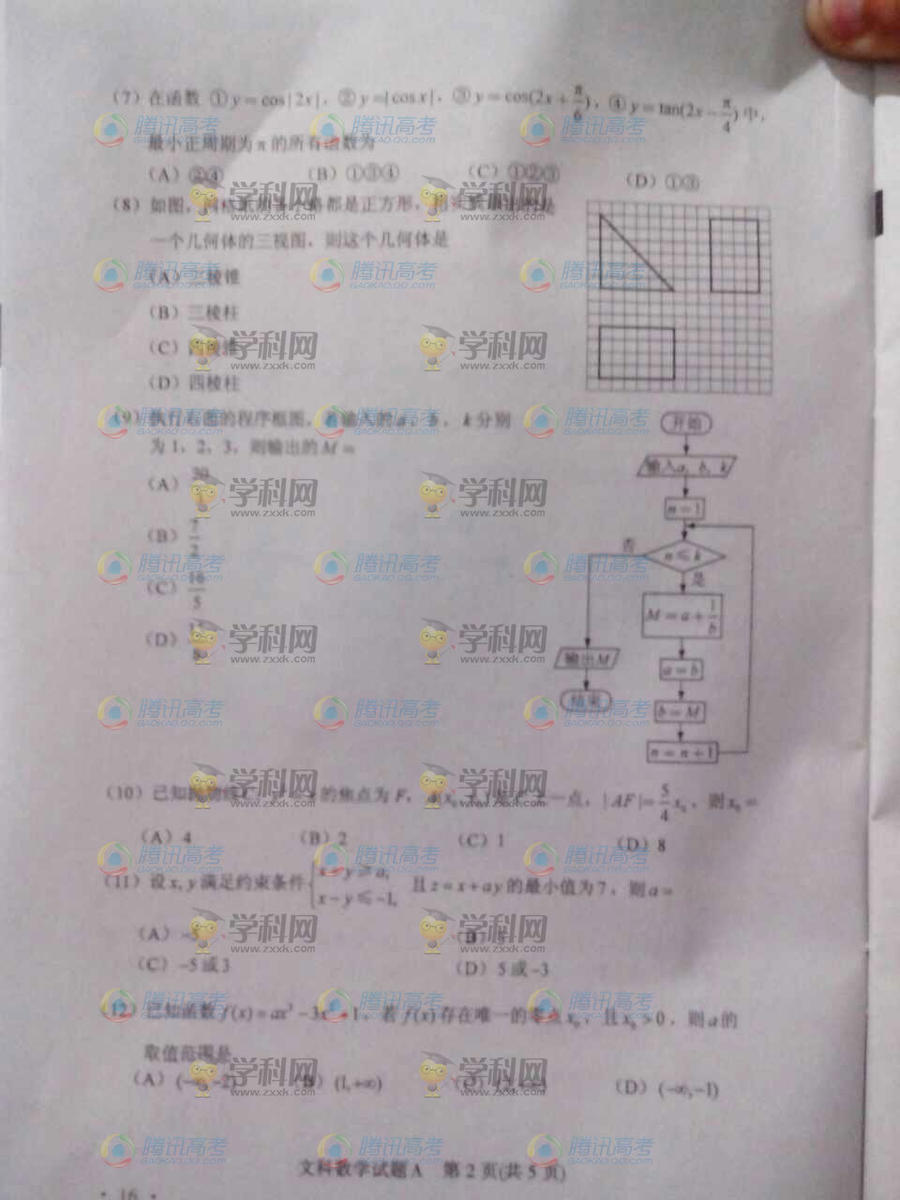 (7) 在函数 ①y=cos|2x|, ②y=|cosx|, ③y=cos(2x+π/6), ④y=tan(2x-π/4)中,
最小正周期为π的所有函数为
(A) ②④ (B) ①③④ (C) ①②③ (D) ①③
(8) 如图, 都是正方形, 是
一个几何体的三视图, 则这个几何体是
(A) 棱锥
(B) 三棱柱
(C)
(D) 四棱柱
(9) 执行右面的程序框图, 若输入的a, b, k分别
为1, 2, 3, 则输出的M=
(A)
(B) 7/2
(C) 16/5
(D) /8
开始
输入a, b, k
n=1
否
n≤k
是
M=a+1/b
输出M
a=b
结束
b=M
n=n+1
(10) 已知 的焦点为F, 一点, |AF|=5/4 x₀, 则x₀=
(A) 4 (B) 2 (C) 1 (D) 8
(11) 设x, y满足约束条件 { y≥a, x-y≤-1, 且z=x+ay的最小值为7, 则a=
(A) -5 (B)
(C) -5或3 (D) 5或-3
(12) 已知函数f(x)=ax³-3x² 1, 若f(x)存在唯一的零点x₀, 且x₀>0, 则a的
取值范围是
(A) (-∞,-2) (B) (1,+∞) (C) (D) (-∞,-1)
文科数学试题A 第2页(共5页)
· 16 ·
腾讯高考
GAOKAO.QQ.COM
学科网
www.zxxk.com